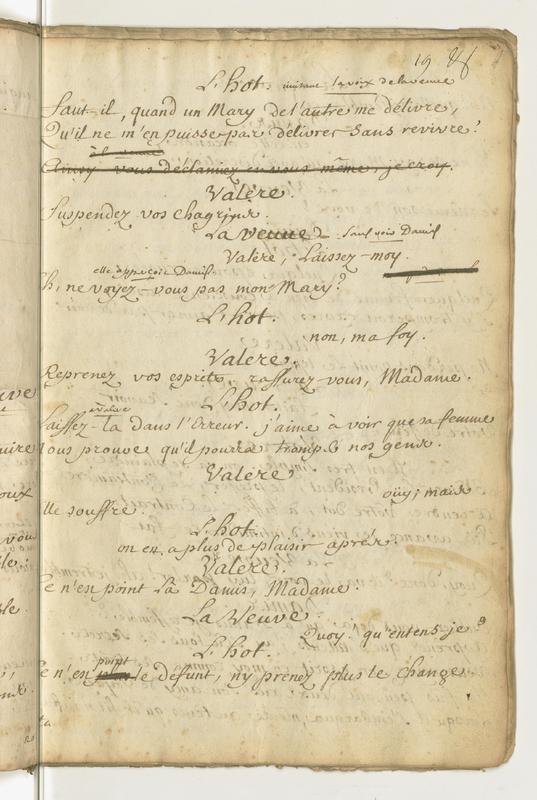 19
L'hot. imitant la voix de la veuve
faut-il, quand un Mary de l'autre me délivre,
Qu'il ne m'en puisse pas délivrer sans revivre?
vous déclamiez en vous même, je croy.
Valère.
Suspendez vos chagrins.
La veuve sans voir Damis
Valère, Laissez-moy.
elle apperçoit Damis
h, ne voyez-vous pas mon Mary?
L'hot.
non, ma foy.
Valère.
Reprenez vos esprits, rassurez-vous, Madame.
L'hot.
à Valere
Laissez-la dans l'Erreur. j'aime à voir que sa femme
ous prouve qu'il pourra tromper nos gens.
Valère
oüy; mais
lle souffre.
L'hot.
on en a plus de plaisir après.
Valère.
e n'est point là Damis, Madame.
La Veuve.
Quoy! qu'entens-je?
L'hot.
point
e n'est plus le défunt, n'y prenez plus le change.
uve
uire
oux
vous
ta